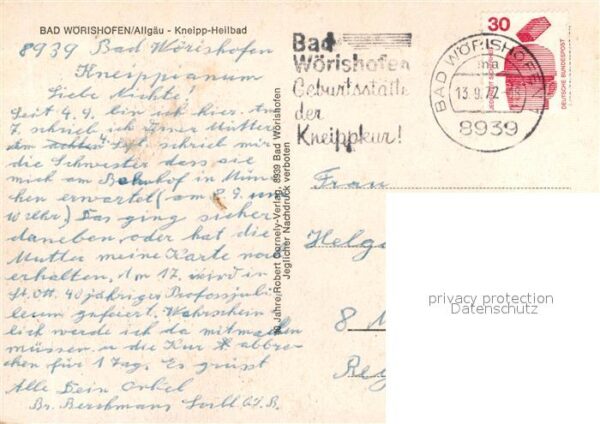 BAD WÖRISHOFEN/Allgäu - Kneipp-Heilbad
8939 Bad Wörishofen
Kneippianum
Liebe Nichte!
Seit 4.9. bin ich hier. Am
7. schrieb ich Deiner Mutter
am schrieb mir
die Schwester dass sie
mich am Bahnhof in Mün-
chen erwartet (am 8.9. um
Uhr) Das ging sicher
daneben, oder hat die
Mutter meine Karte noch
erhalten. Am 17. wird in
St. Ott. 40 jähriges Professjubi-
leum gefeiert. Wahrschein-
lich werde ich da mitmachen
müssen u die Kur abbre-
chen für 1 Tag. Es grüsst
Alle Dein Onkel
Br. Berchmans
Jahre Robert Cornely-Verlag, 8939 Bad Wörishofen
Jeglicher Nachdruck verboten
Bad
Wörishofen
Geburtsstätte
der
Kneippkur!
BAD WÖRISHOFEN
ma
13.9.72
8939
30
JEDERZEIT SICHERHEIT
DEUTSCHE BUNDESPOST
Frau
Helga
8
privacy protection
Datenschutz